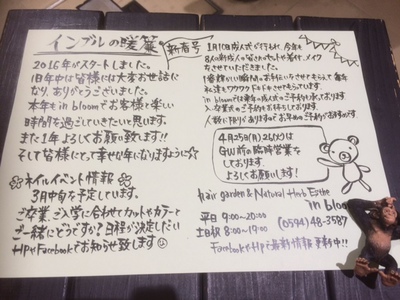 インブルの暖簾
新春号
2016年がスタートしました。
旧年中は皆様には大変お世話に
なり、ありがとうございました。
本年もin bloomでお客様と楽しい
時間を過ごしていきたいと思います。
また1年よろしくお願い致します!!
そして皆様にとって幸せな年になりますように☆
ネイルイベント情報
3月中旬を予定しています。
ご卒業、ご入学に合わせてカットやカラーと
ご一緒にどうですか?日程が決定しだい
HPやFacebookでお知らせ致します
1月10日成人式が行われ、今年も
8人の新成人の皆さんのセットや着付、メイク
をさせていただきました。
1番輝かしい瞬間のお手伝いをさせてもらって毎年
私達もワクワクドキドキさせてもらってます。
in bloomでは来年の成人式のご予約も承っております。
又、卒業式のご予約もお待ちしております。
人数に限りがありますのでお早めのご予約がおすすめです
4月25日(月)26(火)は
GW前の臨時営業を
しております。
よろしくお願いします!
hair garden & Natural Herb Esthe
in bloom
平日 9:00~20:00
土日祝 8:00~19:00
(0594)48-3587
FacebookやHPで最新情報更新中!!